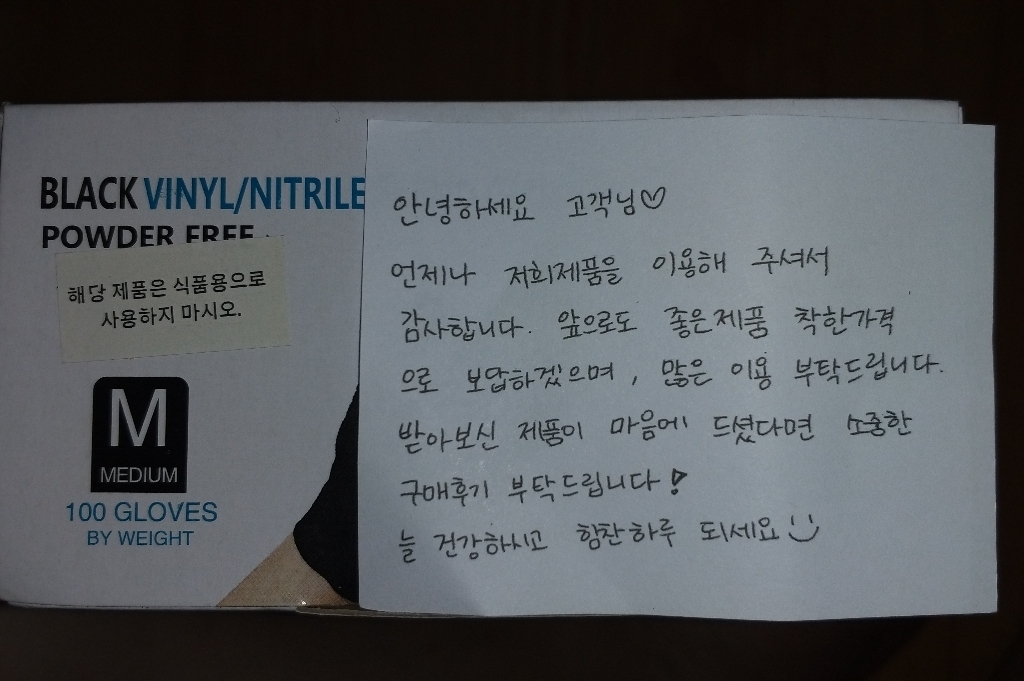 BLACK VINYL/NITRILE
POWDER FREE
해당 제품은 식품용으로
사용하지 마시오.
M
MEDIUM
100 GLOVES
BY WEIGHT
안녕하세요 고객님♡
언제나 저희제품을 이용해 주셔서
감사합니다. 앞으로도 좋은제품 착한가격
으로 보답하겠으며, 많은 이용 부탁드립니다.
받아보신 제품이 마음에 드셨다면 소중한
구매후기 부탁드립니다!
늘 건강하시고 힘찬하루 되세요